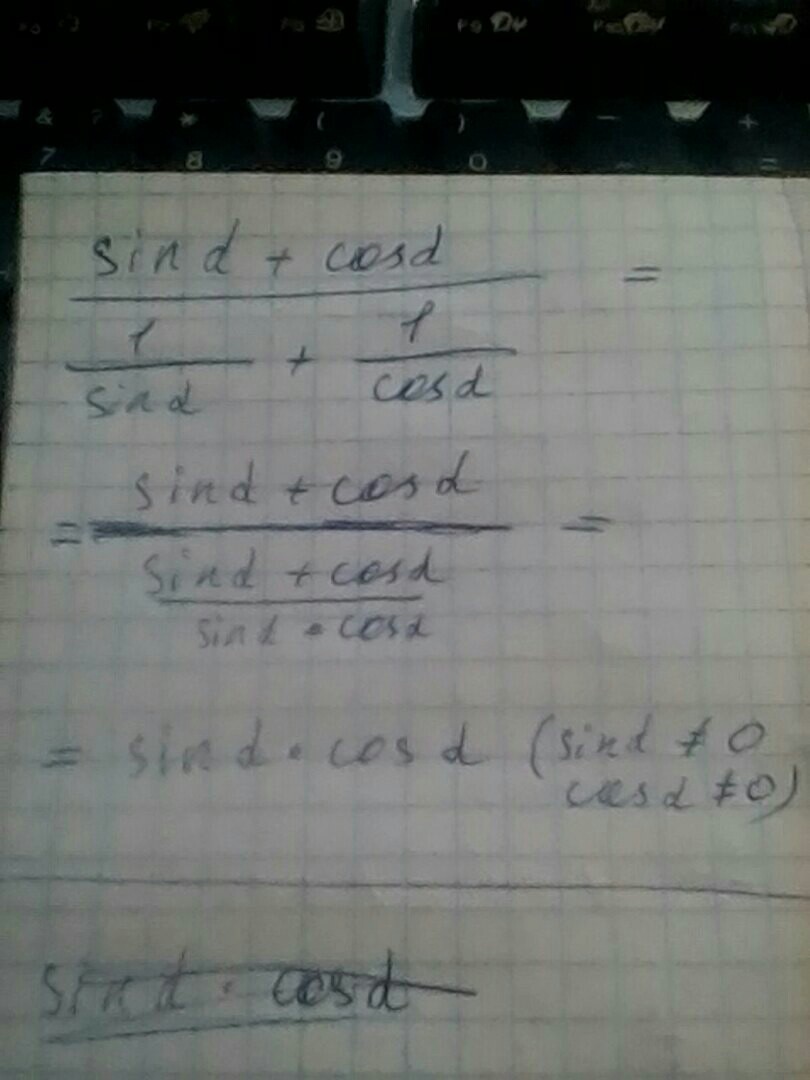 & * ( ) - +
7 8 9 0 - =
sin α + cos α =
1 + 1
sin α cos α
= sin α + cos α =
sin α + cos α
sin α • cos α
= sin α • cos α (sin α ≠ 0
cos α ≠ 0)
sin α • cos α